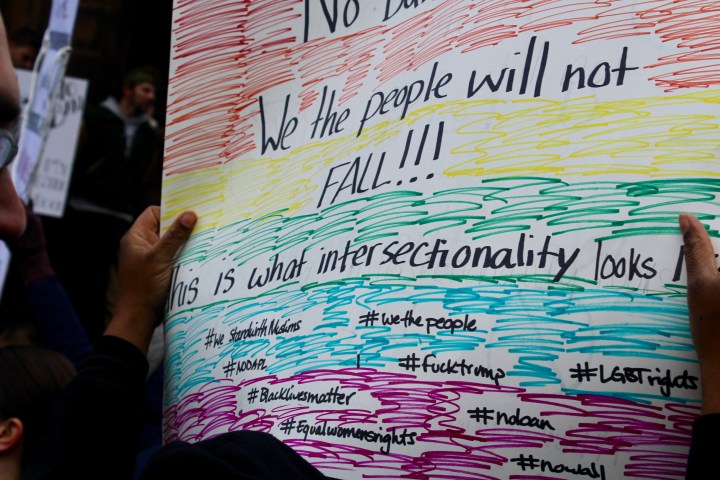 No
We the people will not
FALL!!!
This is what intersectionality looks
#We StandwithMuslims #wethepeople
#NODAPL #fucktrump #LGBTrights
#Blacklivesmatter #noban
#Equalwomensrights #nowall